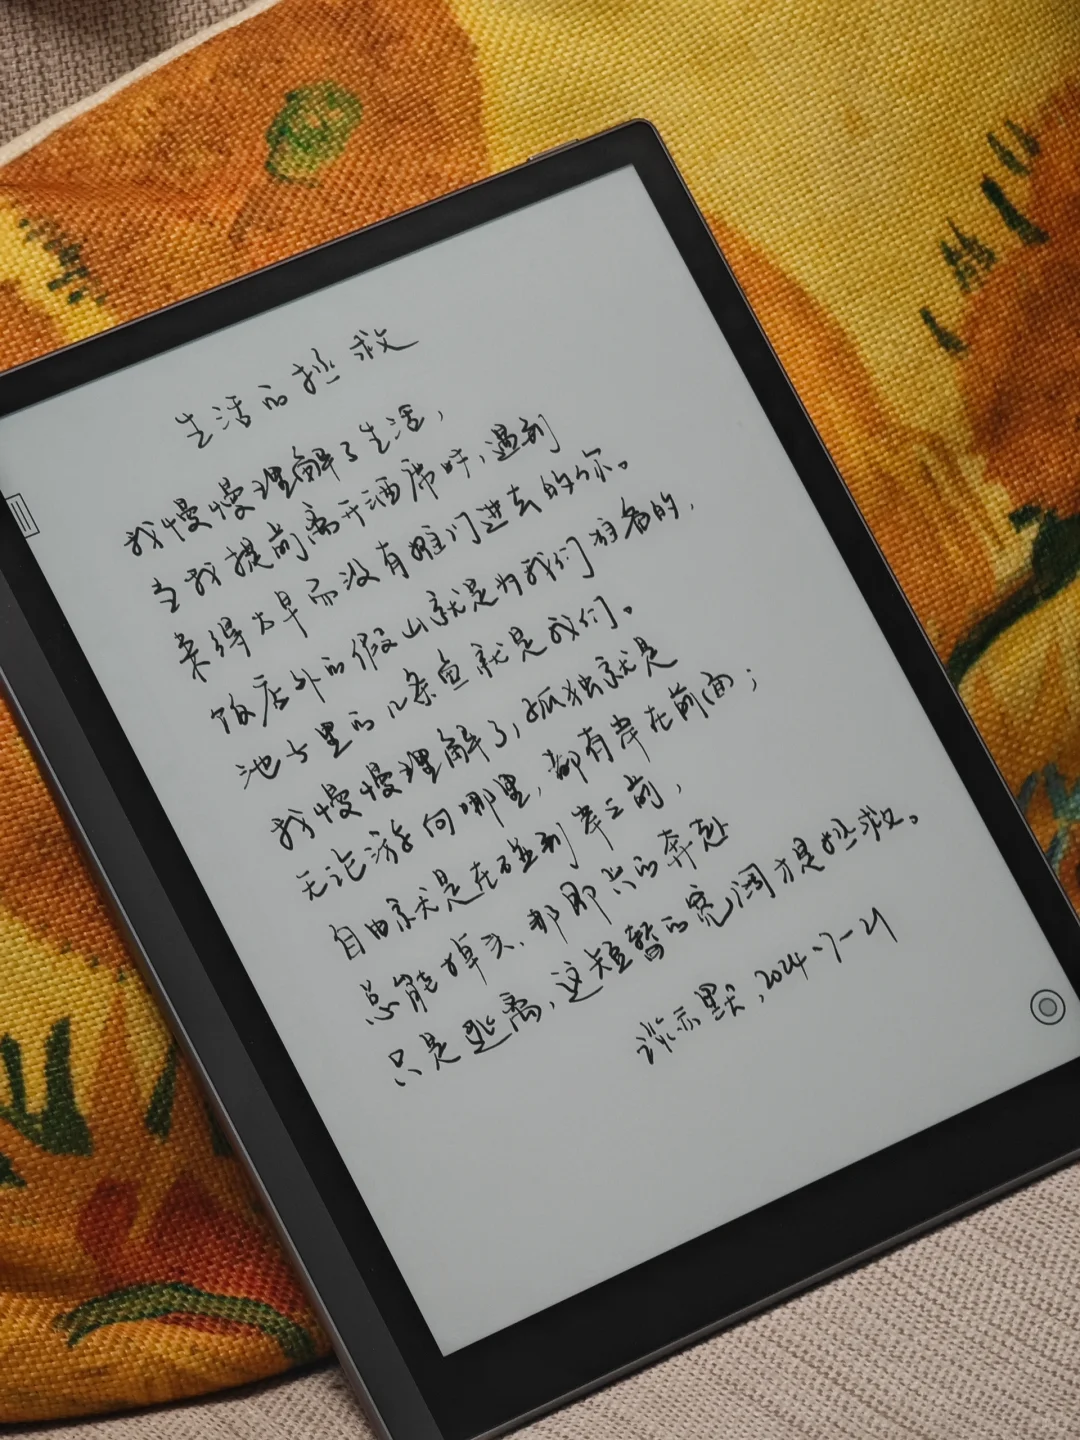 生活的拯救
我慢慢理解了生活，
当我提前离开酒席时，遇到
来得太早而没有推门进去的你。
饭店外的假山就是为我们准备的，
池子里的几条鱼就是我们。
我慢慢理解了，孤独就是
无论游向哪里，都有岸在前面；
自由就是在碰到岸之前，
总能掉头，那即兴的奔赴
只是逃离，这短暂的宽阔才是拯救。
谈亦默，2024.7-21